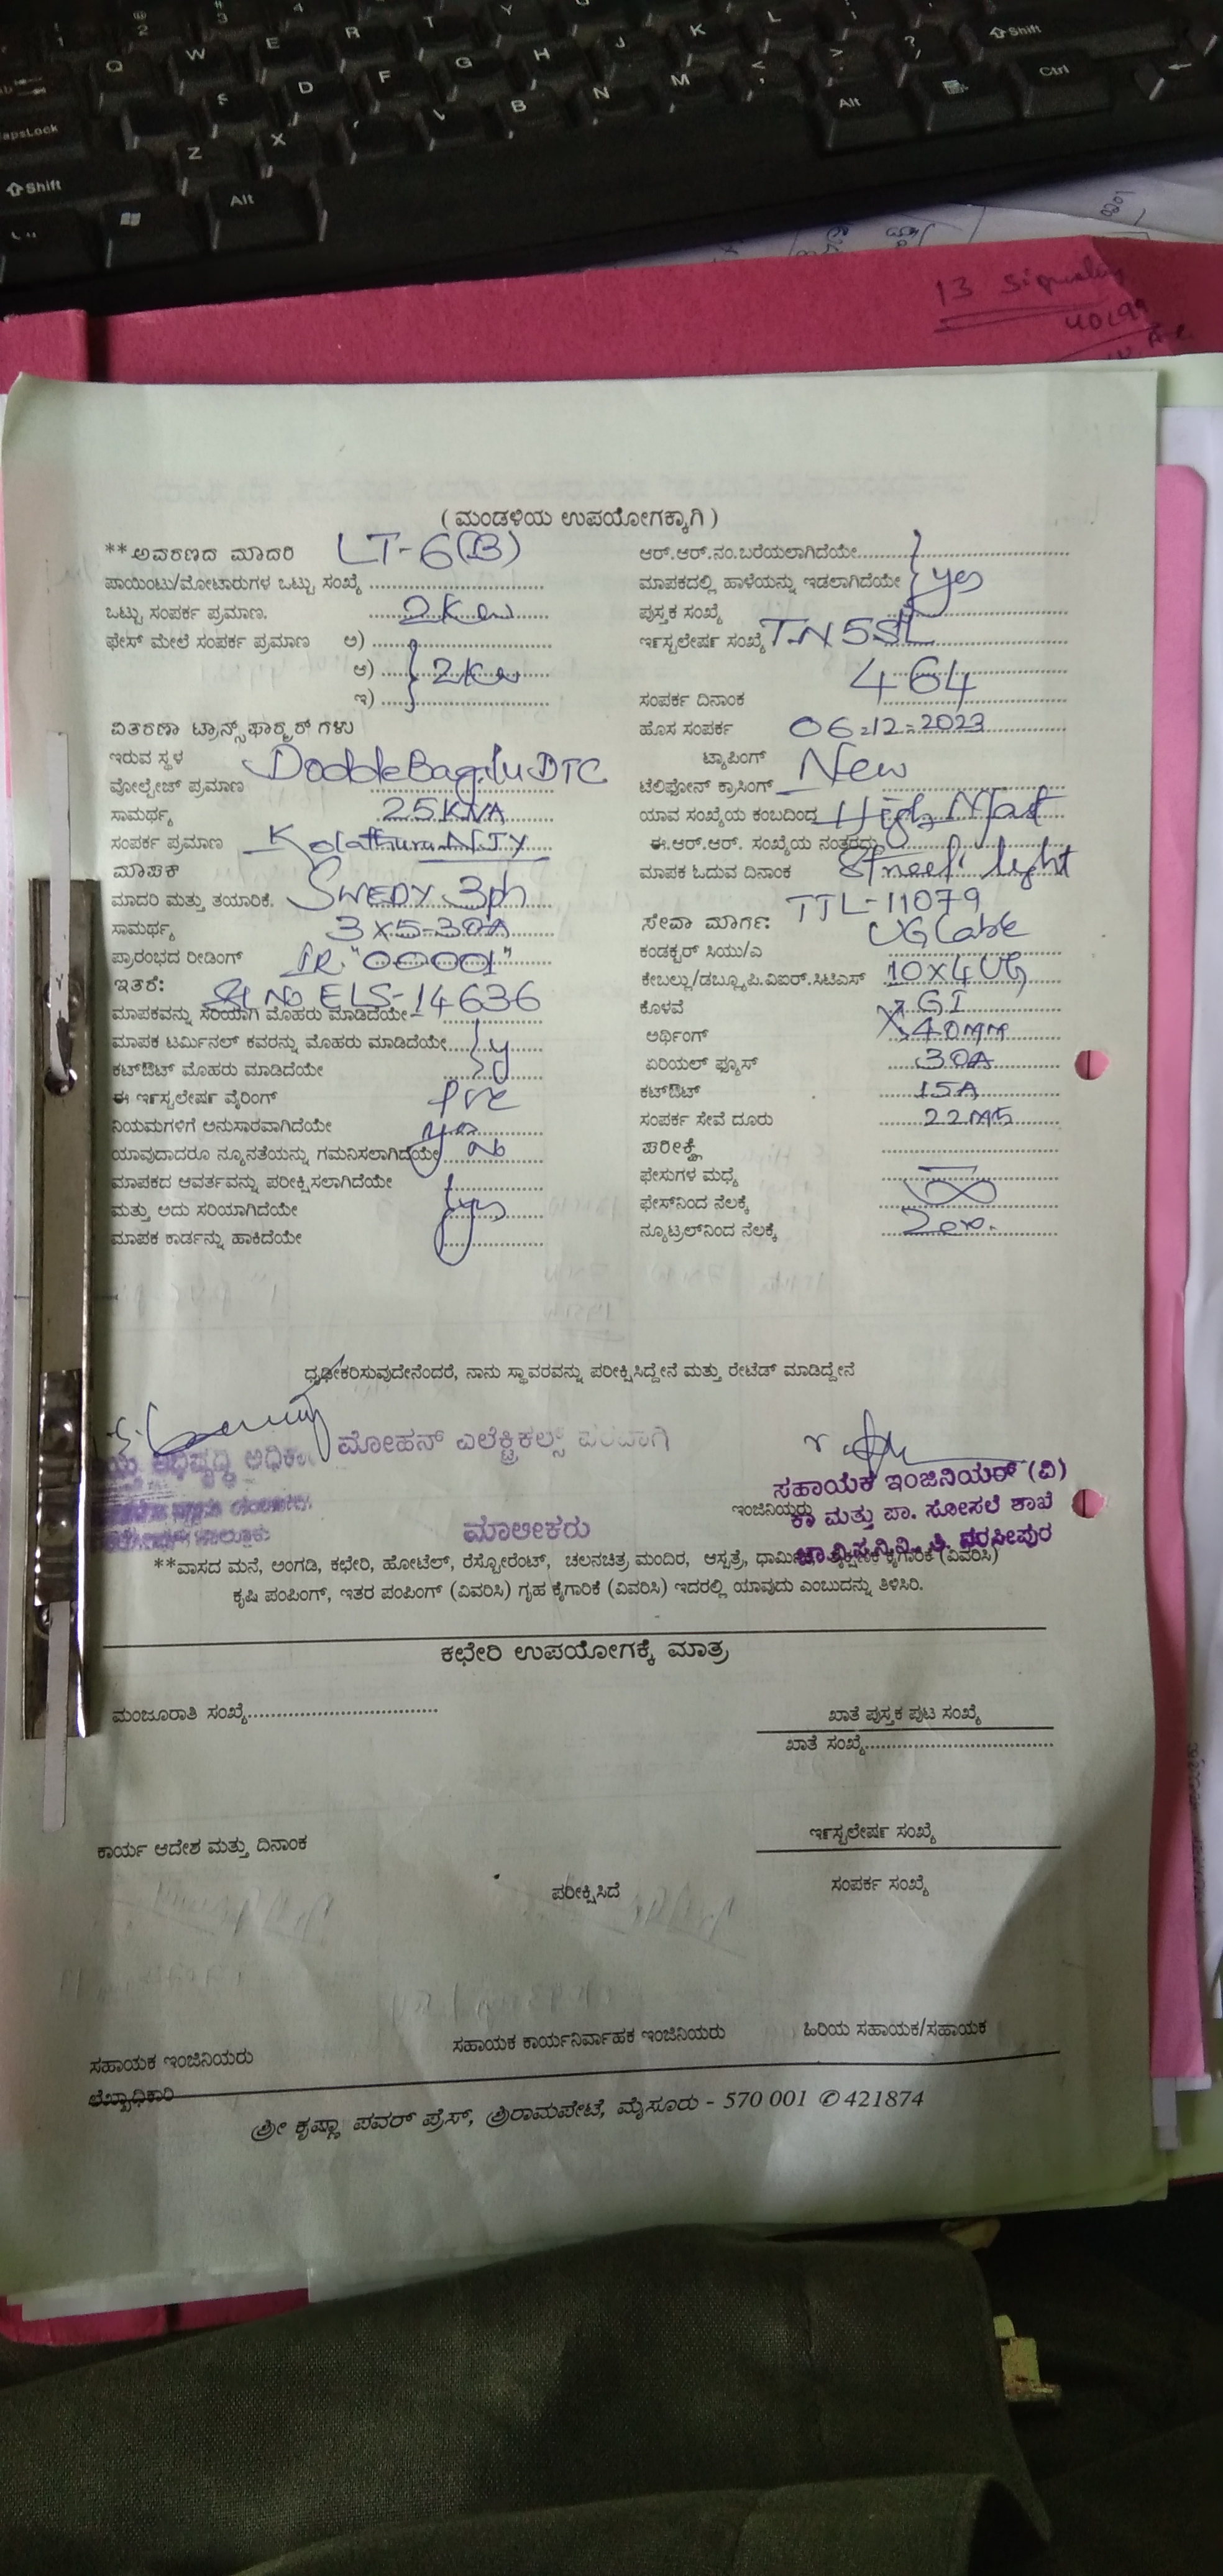 13
( ಮಂಡಳಿಯ ಉಪಯೋಗಕ್ಕಾಗಿ )
**ಆವರಣದ ಮಾದರಿ LT-6(B)
ಪಾಯಿಂಟು/ಮೋಟಾರುಗಳ ಒಟ್ಟು ಸಂಖ್ಯೆ
ಒಟ್ಟು ಸಂಪರ್ಕ ಪ್ರಮಾಣ. 2Kw
ಫೇಸ್ ಮೇಲೆ ಸಂಪರ್ಕ ಪ್ರಮಾಣ ಅ)
ಆ) 2Kw
ಇ)
ವಿತರಣಾ ಟ್ರಾನ್ಸ್‌ಫಾರ್ಮರ್ ಗಳು
ಇರುವ ಸ್ಥಳ DoddeBagilu DTC
ವೋಲ್ಟೇಜ್ ಪ್ರಮಾಣ
ಸಾಮರ್ಥ್ಯ 25KVA
ಸಂಪರ್ಕ ಪ್ರಮಾಣ Kolathuru NJY
ಮಾಪಕ
ಮಾದರಿ ಮತ್ತು ತಯಾರಿಕೆ. 3ph
ಸಾಮರ್ಥ್ಯ 3X5-30A
ಪ್ರಾರಂಭದ ರೀಡಿಂಗ್ IR "00001"
ಇತರೆ: Sl No ELS-14636
ಮಾಪಕವನ್ನು ಸರಿಯಾಗಿ ಮೊಹರು ಮಾಡಿದೆಯೇ
ಮಾಪಕ ಟರ್ಮಿನಲ್ ಕವರನ್ನು ಮೊಹರು ಮಾಡಿದೆಯೇ y
ಕಟ್‌ಔಟ್ ಮೊಹರು ಮಾಡಿದೆಯೇ
ಈ ಇನ್‌ಸ್ಟಲೇಷನ್ ವೈರಿಂಗ್ PVC
ನಿಯಮಗಳಿಗೆ ಅನುಸಾರವಾಗಿದೆಯೇ yes
ಯಾವುದಾದರೂ ನ್ಯೂನತೆಯನ್ನು ಗಮನಿಸಲಾಗಿದೆಯೇ No
ಮಾಪಕದ ಆವರ್ತವನ್ನು ಪರೀಕ್ಷಿಸಲಾಗಿದೆಯೇ
ಮತ್ತು ಅದು ಸರಿಯಾಗಿದೆಯೇ yes
ಮಾಪಕ ಕಾರ್ಡನ್ನು ಹಾಕಿದೆಯೇ
ಆರ್.ಆರ್.ನಂ.ಬರೆಯಲಾಗಿದೆಯೇ
ಮಾಪಕದಲ್ಲಿ ಹಾಳೆಯನ್ನು ಇಡಲಾಗಿದೆಯೇ yes
ಪುಸ್ತಕ ಸಂಖ್ಯೆ
ಇನ್‌ಸ್ಟಲೇಷನ್ ಸಂಖ್ಯೆ TN5SL
464
ಸಂಪರ್ಕ ದಿನಾಂಕ
ಹೊಸ ಸಂಪರ್ಕ 06-12-2023
ಟ್ಯಾಪಿಂಗ್
ಟೆಲಿಫೋನ್ ಕ್ರಾಸಿಂಗ್ New
ಯಾವ ಸಂಖ್ಯೆಯ ಕಂಬದಿಂದ High Mast
ಈ.ಆರ್.ಆರ್. ಸಂಖ್ಯೆಯ ನಂತರದ್ದು
ಮಾಪಕ ಓದುವ ದಿನಾಂಕ Street light
TTL-11079
ಸೇವಾ ಮಾರ್ಗ: UG Cable
ಕಂಡಕ್ಟರ್ ಸಿಯು/ಎ
ಕೇಬಲ್ಲು/ಡಬ್ಲ್ಯೂ.ಪಿ.ವಿಐಆರ್.ಸಿಟಿಎಸ್ 10X4 UG
ಕೊಳವೆ GI
ಅರ್ಥಿಂಗ್ 40mm
ಏರಿಯಲ್ ಫ್ಯೂಸ್ 30A
ಕಟ್‌ಔಟ್ 15A
ಸಂಪರ್ಕ ಸೇವೆ ದೂರು 22Mts
ಪರೀಕ್ಷೆ
ಫೇಸುಗಳ ಮಧ್ಯೆ
ಫೇಸ್‌ನಿಂದ ನೆಲಕ್ಕೆ
ನ್ಯೂಟ್ರಲ್‌ನಿಂದ ನೆಲಕ್ಕೆ Zero.
ಧೃಢೀಕರಿಸುವುದೇನೆಂದರೆ, ನಾನು ಸ್ಥಾವರವನ್ನು ಪರೀಕ್ಷಿಸಿದ್ದೇನೆ ಮತ್ತು ರೇಟೆಡ್ ಮಾಡಿದ್ದೇನೆ
ಮೋಹನ್ ಎಲೆಕ್ಟ್ರಿಕಲ್ಸ್ ಪರವಾಗಿ
ಮಾಲೀಕರು
ಸಹಾಯಕ ಇಂಜಿನಿಯರ್ (ವಿ)
ಇಂಜಿನಿಯರು
ಕಾ ಮತ್ತು ಪಾ. ಸೋಸಲೆ ಶಾಖೆ
ಚಾ.ವಿ.ಸ.ನಿ.ನಿ., ತಿ. ನರಸೀಪುರ
**ವಾಸದ ಮನೆ, ಅಂಗಡಿ, ಕಛೇರಿ, ಹೋಟೆಲ್, ರೆಸ್ಟೋರೆಂಟ್, ಚಲನಚಿತ್ರ ಮಂದಿರ, ಆಸ್ಪತ್ರೆ, ಕೈಗಾರಿಕೆ (ವಿವರಿಸಿ)
ಕೃಷಿ ಪಂಪಿಂಗ್, ಇತರ ಪಂಪಿಂಗ್ (ವಿವರಿಸಿ) ಗೃಹ ಕೈಗಾರಿಕೆ (ವಿವರಿಸಿ) ಇದರಲ್ಲಿ ಯಾವುದು ಎಂಬುದನ್ನು ತಿಳಿಸಿರಿ.
ಕಛೇರಿ ಉಪಯೋಗಕ್ಕೆ ಮಾತ್ರ
ಮಂಜೂರಾತಿ ಸಂಖ್ಯೆ
ಖಾತೆ ಪುಸ್ತಕ ಪುಟ ಸಂಖ್ಯೆ
ಖಾತೆ ಸಂಖ್ಯೆ
ಕಾರ್ಯ ಆದೇಶ ಮತ್ತು ದಿನಾಂಕ
ಇನ್‌ಸ್ಟಲೇಷನ್ ಸಂಖ್ಯೆ
ಪರೀಕ್ಷಿಸಿದೆ
ಸಂಪರ್ಕ ಸಂಖ್ಯೆ
ಸಹಾಯಕ ಇಂಜಿನಿಯರು
ಸಹಾಯಕ ಕಾರ್ಯನಿರ್ವಾಹಕ ಇಂಜಿನಿಯರು
ಹಿರಿಯ ಸಹಾಯಕ/ಸಹಾಯಕ
ಲೆಖ್ಖಾಧಿಕಾರಿ
ಶ್ರೀ ಕೃಷ್ಣಾ ಪವರ್ ಪ್ರೆಸ್, ಶ್ರೀರಾಮಪೇಟೆ, ಮೈಸೂರು - 570 001 ✆ 421874